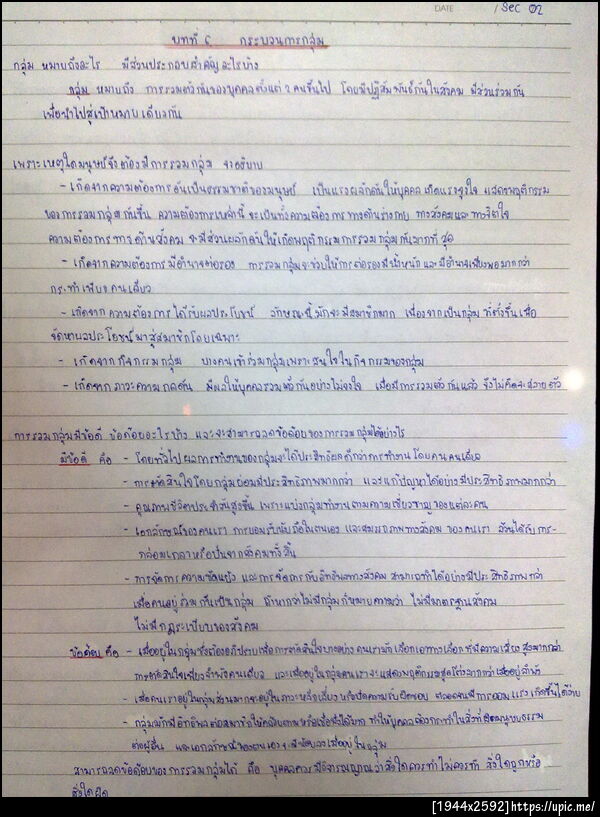 DATE / Sec 02
บทที่ 6 กระบวนการกลุ่ม
กลุ่ม หมายถึงอะไร มีส่วนประกอบสำคัญอะไรบ้าง
กลุ่ม หมายถึง การรวมตัวกันของบุคคลตั้งแต่ 2 คนขึ้นไป โดยมีปฏิสัมพันธ์กันในสังคม มีส่วนร่วมกัน
เพื่อนำไปสู่เป้าหมายเดียวกัน
เพราะเหตุใดมนุษย์จึงต้องมีการรวมกลุ่ม จงอธิบาย
- เกิดจากความต้องการอันเป็นธรรมชาติของมนุษย์ เป็นแรงผลักดันให้บุคคลเกิดแรงจูงใจ แสดงพฤติกรรม
ของการรวมกลุ่มกันขึ้น ความต้องการเหล่านี้ จะเป็นทั้งความต้องการทางด้านร่างกาย ทางสังคมและทางจิตใจ
ความต้องการทางด้านสังคม จะมีส่วนผลักดันให้เกิดพฤติกรรมการรวมกลุ่มกันมากที่สุด
- เกิดจากความต้องการมีอำนาจต่อรอง การรวมกลุ่มจะช่วยให้การต่อรองมีน้ำหนักและมีอำนาจเพียงพอมากกว่า
กระทำเพียงคนเดียว
- เกิดจากความต้องการได้รับผลประโยชน์ ลักษณะนี้มักจะมีสมาชิกมาก เนื่องจากเป็นกลุ่มที่ตั้งขึ้นเพื่อ
จัดหาผลประโยชน์มาสู่สมาชิกโดยเฉพาะ
- เกิดจากกิจกรรมกลุ่ม บางคนเข้าร่วมกลุ่มเพราะสนใจในกิจกรรมของกลุ่ม
- เกิดจากภาวะความกดดัน มีผลให้บุคคลรวมตัวกันอย่างไม่จงใจ เมื่อมีการรวมตัวกันแล้ว จึงไม่คิดจะสลายตัว
การรวมกลุ่มมีข้อดี ข้อด้อยอะไรบ้าง และจะสามารถลดข้อด้อยของการรวมกลุ่มได้อย่างไร
มีข้อดี คือ - โดยทั่วไป ผลการทำงานของกลุ่มจะได้ประสิทธิผลดีกว่าการทำงานโดยคนคนเดียว
- การตัดสินใจโดยกลุ่มย่อมมีประสิทธิภาพมากกว่า และแก้ปัญหาได้อย่างมีประสิทธิภาพมากกว่า
- คุณภาพชีวิตประจำวันสูงขึ้น เพราะแบ่งกลุ่มทำงานตามความเชี่ยวชาญของแต่ละคน
- เอกลักษณ์ของคนเรา การยอมรับนับถือในตนเอง และสมรรถภาพทางสังคม ของคนเรา ล้วนได้รับการ-
กล่อมเกลาหรือปั้นจากสังคมทั้งสิ้น
- การจัดการความขัดแย้ง และการจัดการกับอิทธิพลทางสังคม สามารถทำได้อย่างมีประสิทธิภาพกว่า
เมื่อคนอยู่ร่วมกันเป็นกลุ่ม ถ้าหากว่าไม่มีกลุ่มก็หมายความว่า ไม่มีมาตรฐานสังคม
ไม่มีกฎระเบียบของสังคม
ข้อด้อย คือ - เมื่ออยู่ในกลุ่มซึ่งต้องอภิปรายเพื่อการตัดสินใจบางอย่าง คนเรามักเลือกเอาทางเลือกที่มีความเสี่ยงสูงมากกว่า
การตัดสินใจเพียงลำพังคนเดียว และเมื่ออยู่ในกลุ่มคนเราจะแสดงพฤติกรรมสุดโต่งมากกว่าเมื่ออยู่ลำพัง
- เมื่อคนเราอยู่ในกลุ่มส่วนมากจะอยู่ในภาวะหลีกเลี่ยง หรือปัดความรับผิดชอบ ตลอดจนมีการออมแรงเกิดขึ้นได้ง่าย
- กลุ่มมักมีอิทธิพลต่อสมาชิกให้คล้อยตามหรือเชื่อฟังได้มาก ทำให้บุคคลต้องกระทำในสิ่งที่ผิดมนุษยธรรม
ต่อผู้อื่น และเอกลักษณ์ของตนเองจะมีน้อยลงเมื่ออยู่ในกลุ่ม
สามารถลดข้อด้อยของการรวมกลุ่มได้ คือ บุคคลควรมีวิจารณญาณว่าสิ่งใดควรทำไม่ควรทำ สิ่งใดถูกหรือ
สิ่งใดผิด
[1944x2592]https://upic.me/